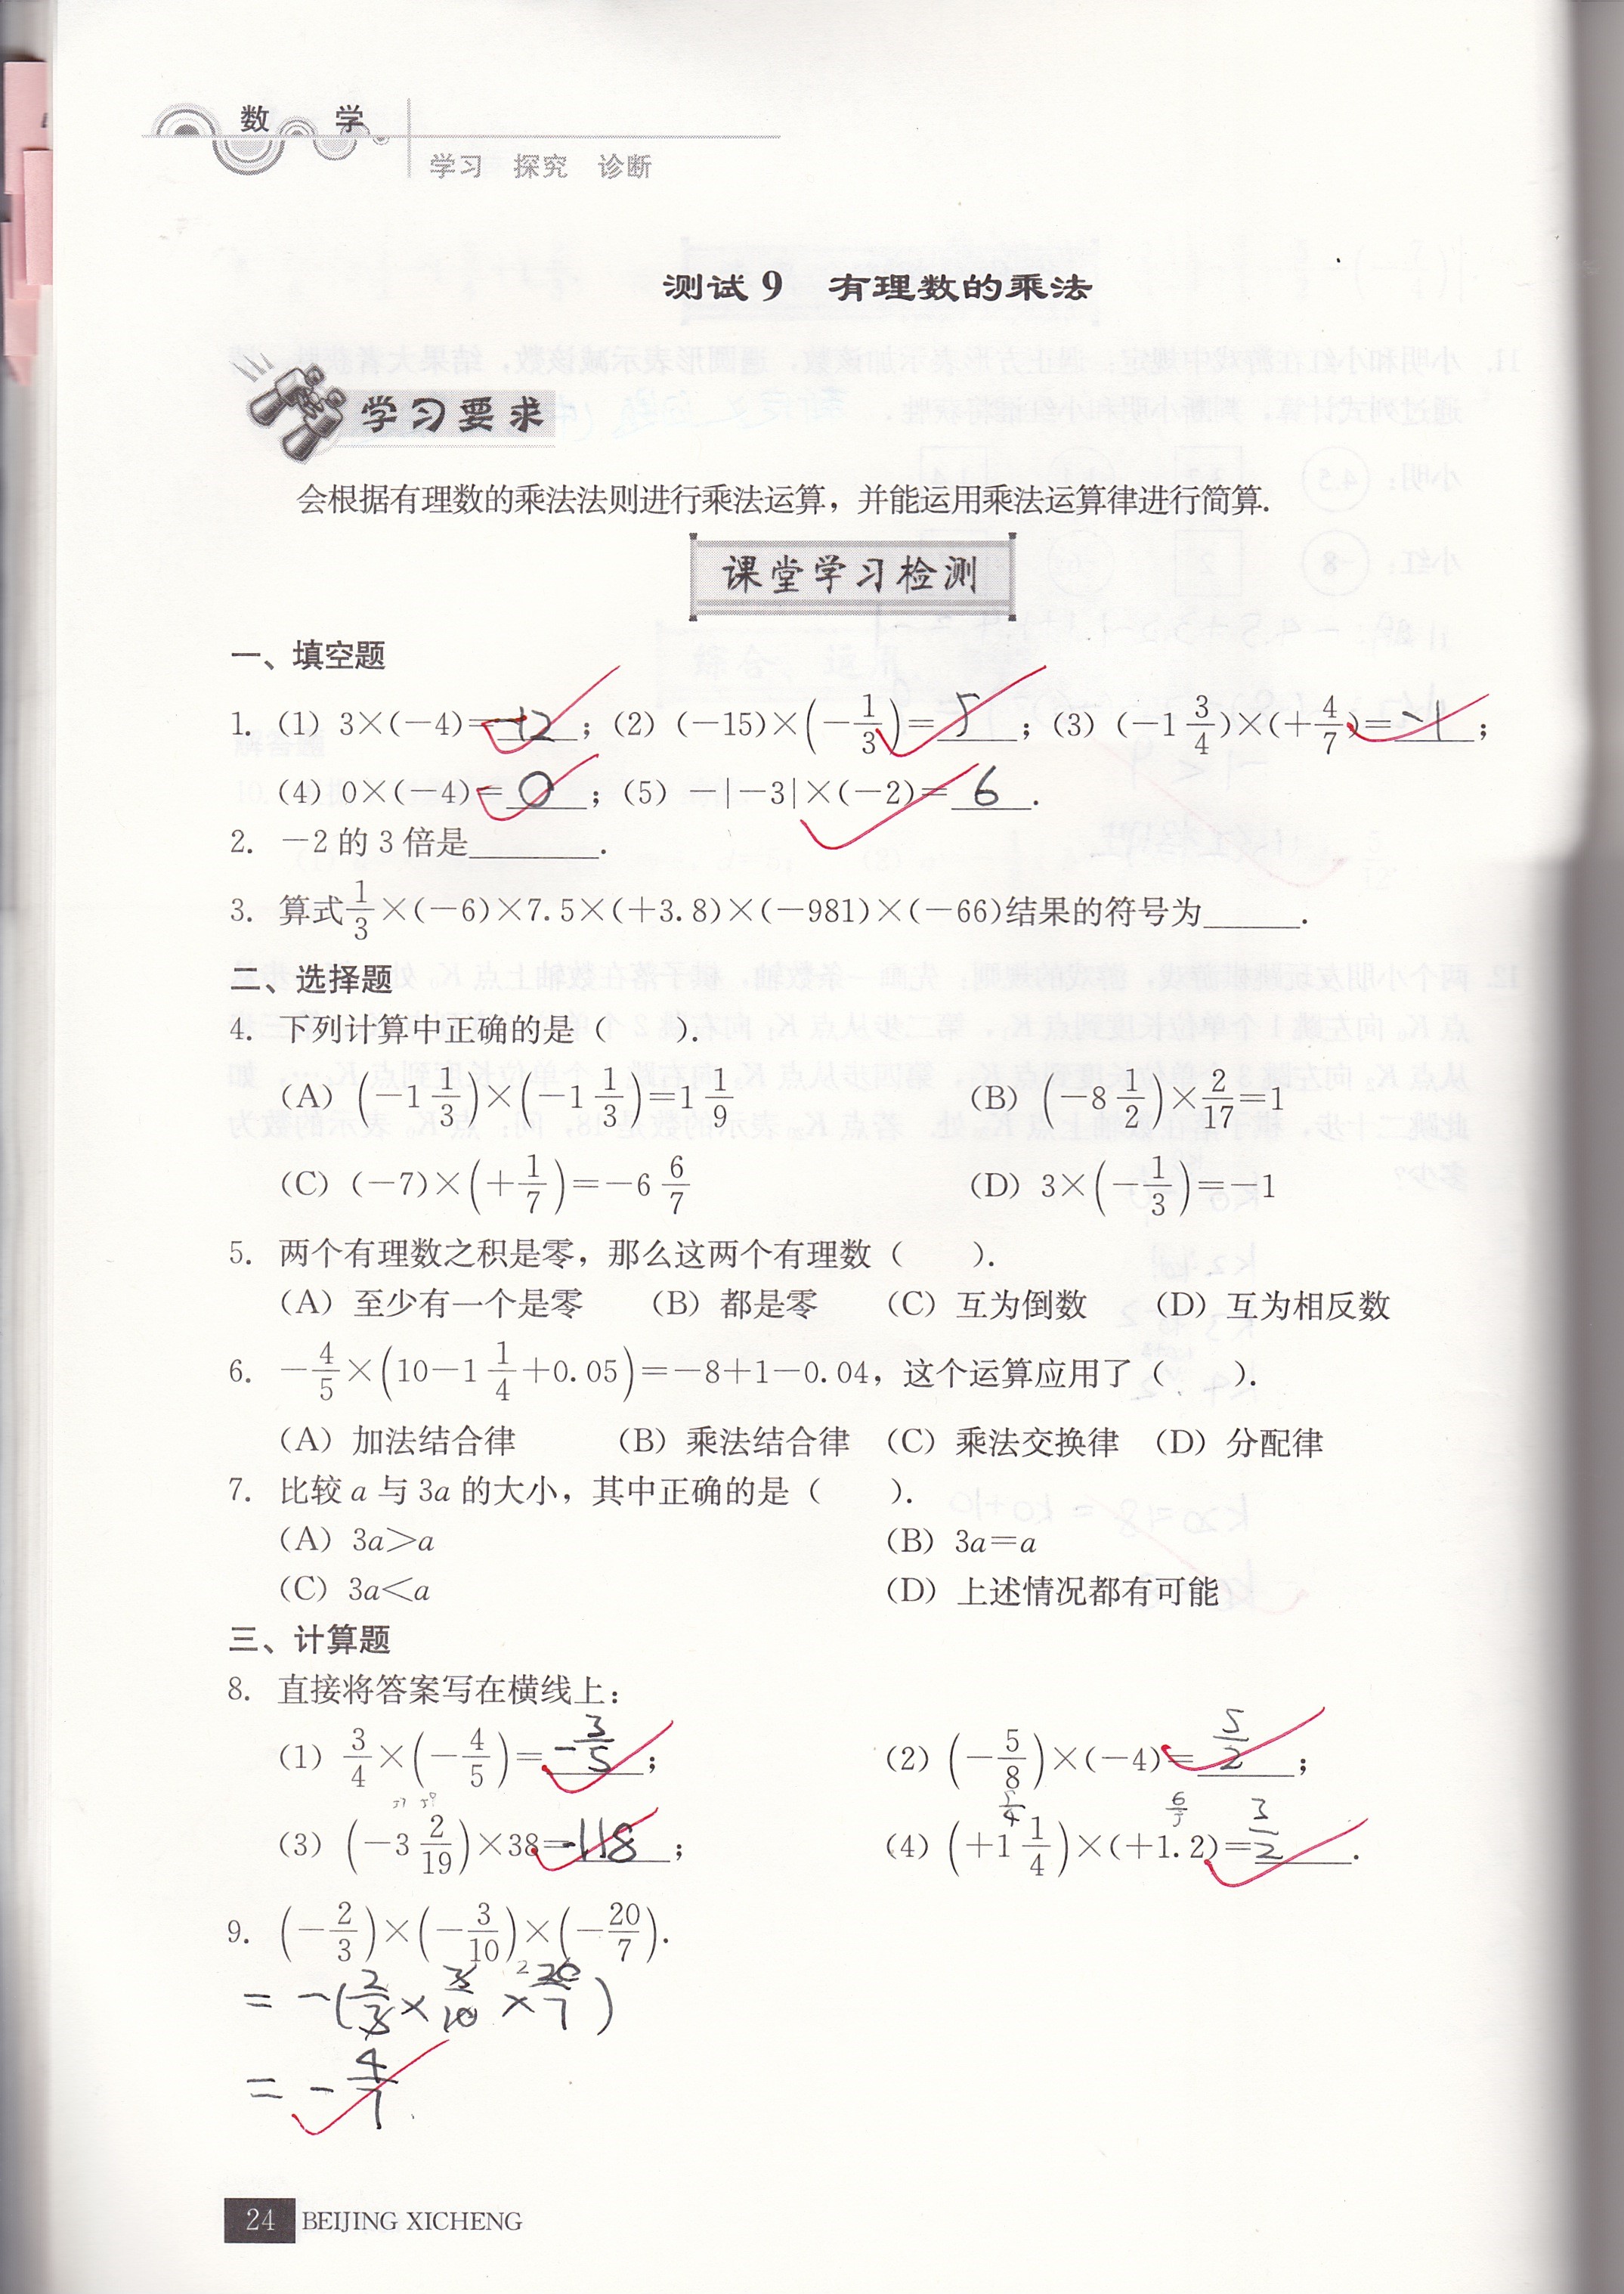 数 学
学习 探究 诊断
测试 9 有理数的乘法
学习要求
会根据有理数的乘法法则进行乘法运算，并能运用乘法运算律进行简算.
课堂学习检测
一、填空题
1. (1) 3×(－4)=-12；(2) (－15)×(－1/3)=5；(3) (－1 3/4)×(＋4/7)=-1；
(4) 0×(－4)=0；(5) －|－3|×(－2)=6.
2. －2 的 3 倍是________.
3. 算式 1/3×(－6)×7.5×(＋3.8)×(－981)×(－66)结果的符号为______.
二、选择题
4. 下列计算中正确的是（　　）.
(A) (－1 1/3)×(－1 1/3)=1 1/9 (B) (－8 1/2)×2/17=1
(C) (－7)×(＋1/7)=－6 6/7 (D) 3×(－1/3)=－1
5. 两个有理数之积是零，那么这两个有理数（　　）.
(A) 至少有一个是零 (B) 都是零 (C) 互为倒数 (D) 互为相反数
6. －4/5×(10－1 1/4＋0.05)=－8＋1－0.04，这个运算应用了（　　）.
(A) 加法结合律 (B) 乘法结合律 (C) 乘法交换律 (D) 分配律
7. 比较 a 与 3a 的大小，其中正确的是（　　）.
(A) 3a>a (B) 3a=a
(C) 3a<a (D) 上述情况都有可能
三、计算题
8. 直接将答案写在横线上：
(1) 3/4×(－4/5)=-3/5； (2) (－5/8)×(－4)=5/2；
(3) (－3 2/19)×38=-118； (4) (＋1 1/4)×(＋1.2)=3/2.
9. (－2/3)×(－3/10)×(－20/7).
= -(2/3×3/10×20/7)
= -4/7
24 BEIJING XICHENG